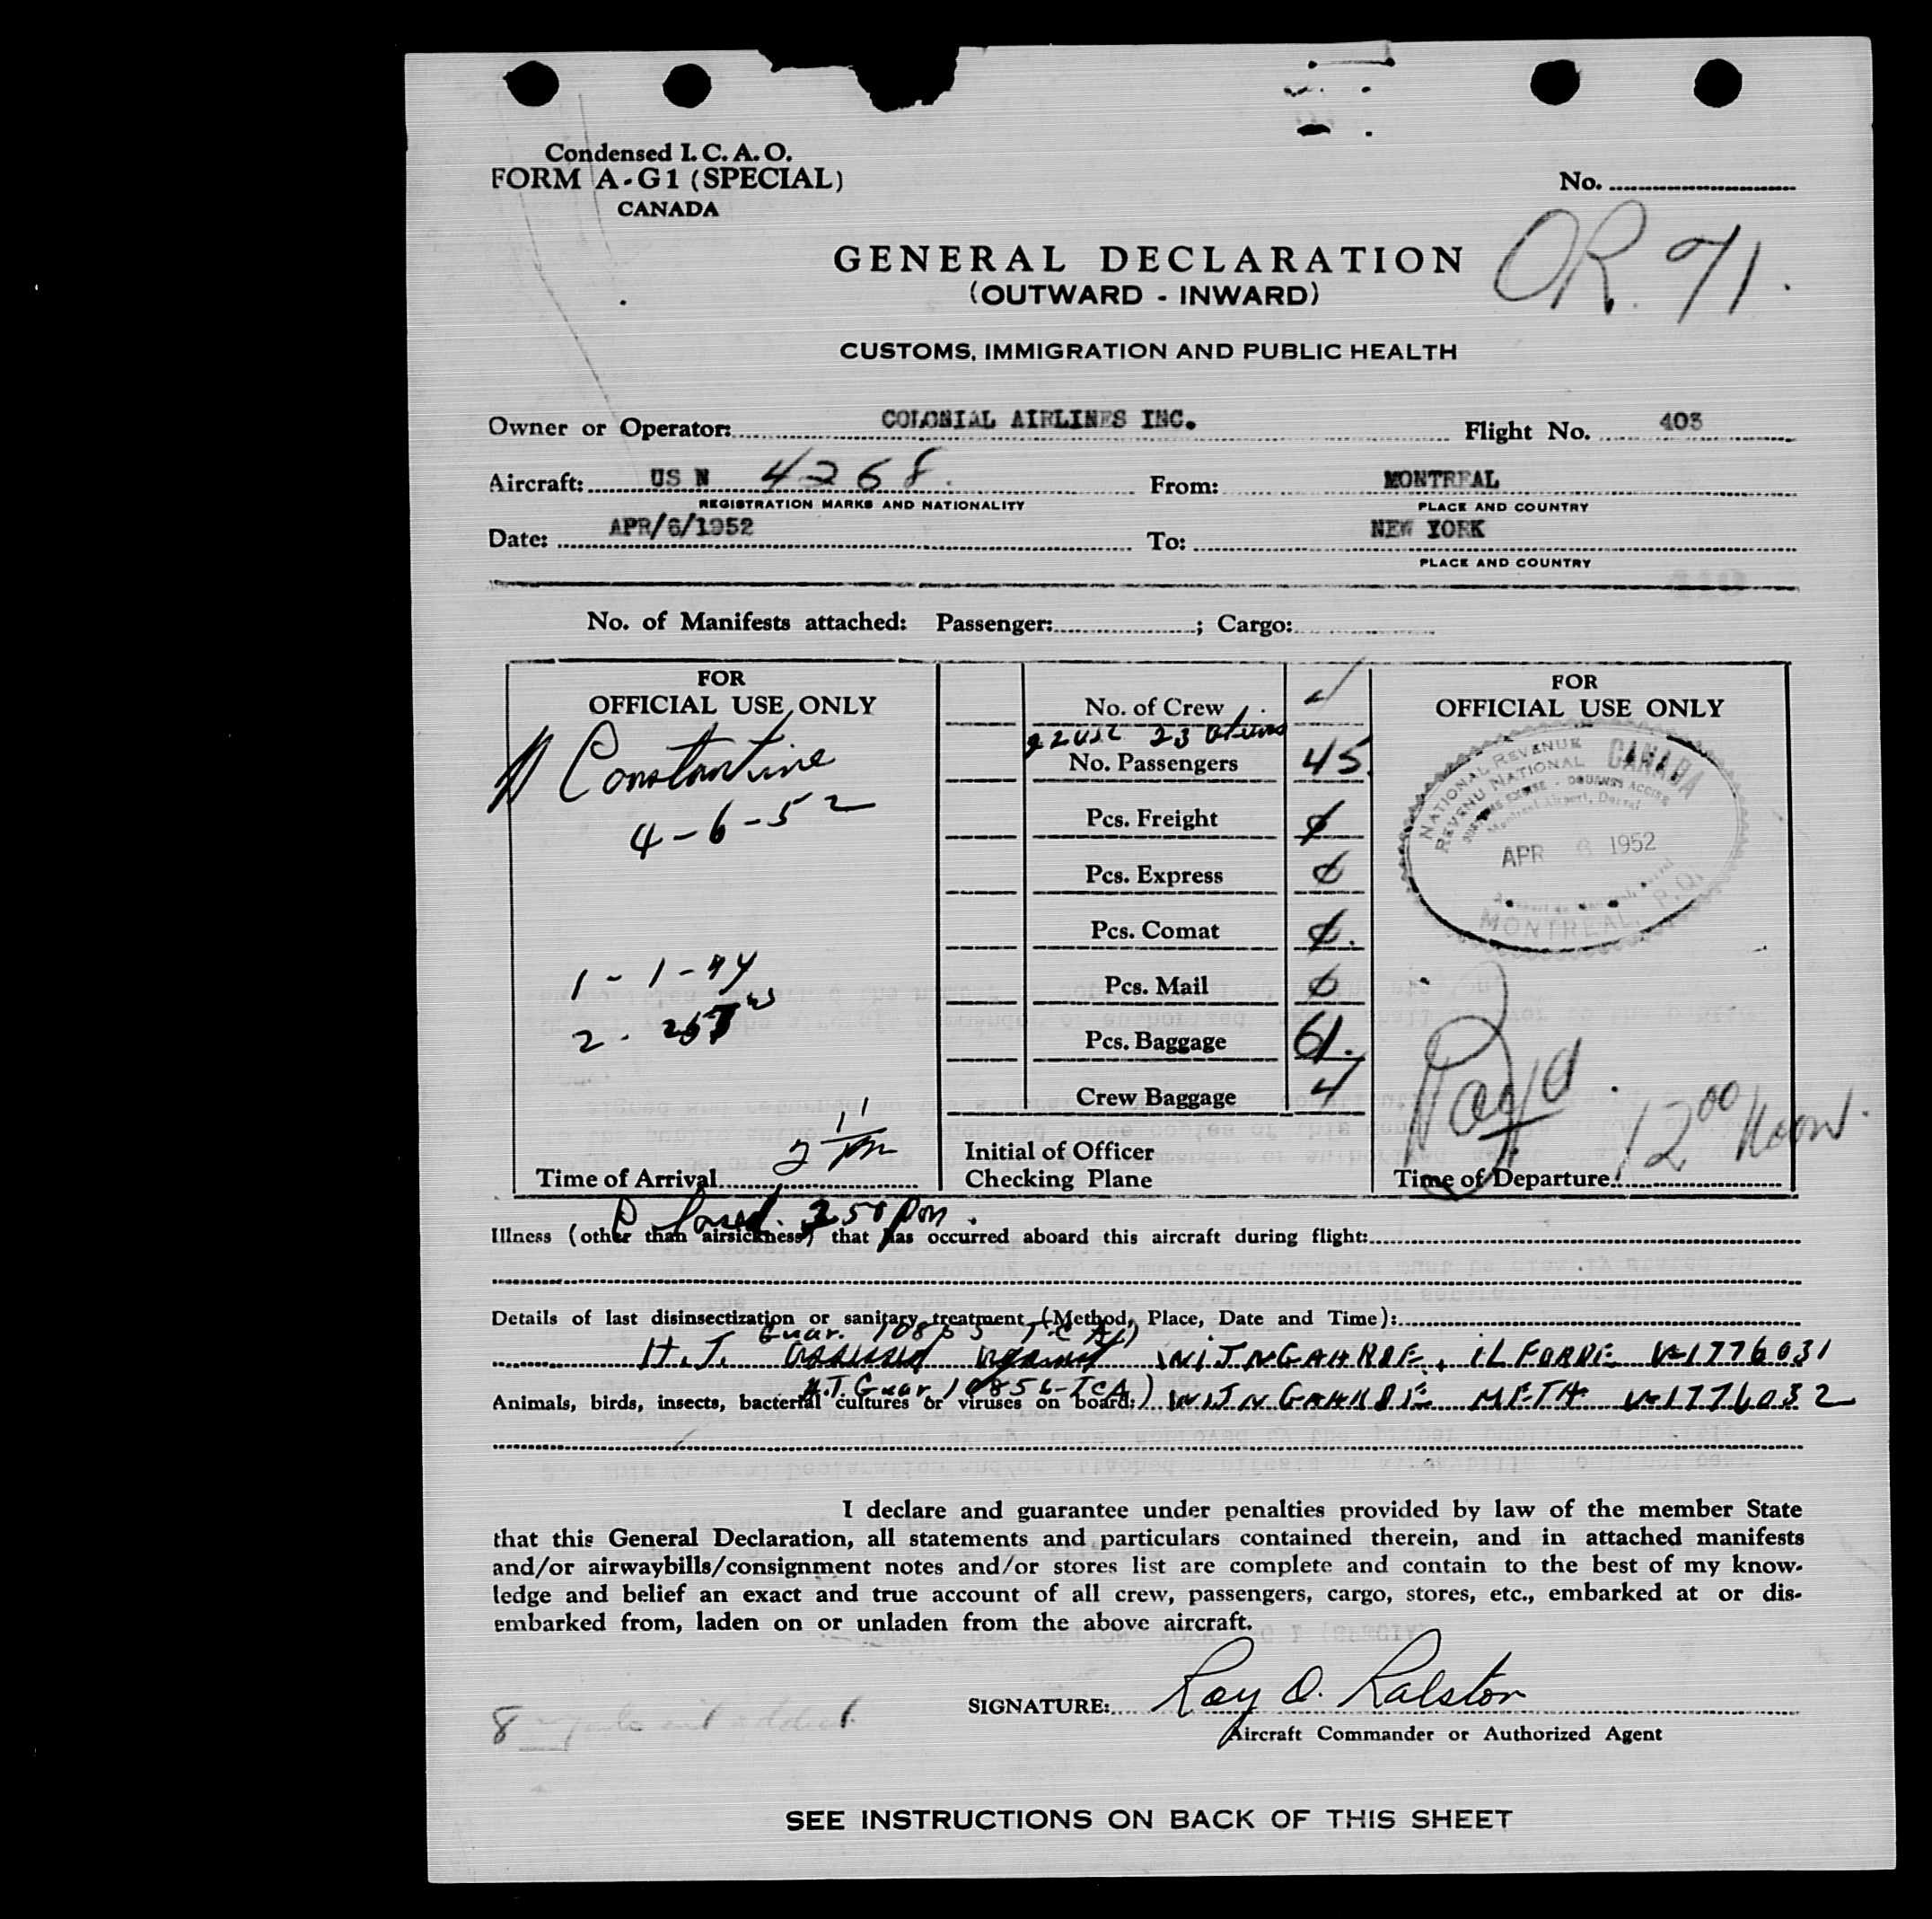 Condensed I. C. A. O.
FORM A-G1 (SPECIAL)
CANADA
No.
OR. 71.
GENERAL DECLARATION
(OUTWARD - INWARD)
CUSTOMS, IMMIGRATION AND PUBLIC HEALTH
Owner or Operator: COLONIAL AIRLINES INC. Flight No. 403
Aircraft: US N 4268. From: MONTREAL
REGISTRATION MARKS AND NATIONALITY PLACE AND COUNTRY
Date: APR/6/1952 To: NEW YORK
PLACE AND COUNTRY
No. of Manifests attached: Passenger: ; Cargo:
FOR
OFFICIAL USE ONLY
Constantine
4-6-52
1 - 1 - 44
2 -
Time of Arrival
No. of Crew 4
22 USC 23
No. Passengers 45
Pcs. Freight ∅
Pcs. Express ∅
Pcs. Comat ∅.
Pcs. Mail ∅
Pcs. Baggage 61.
Crew Baggage 4
Initial of Officer
Checking Plane
FOR
OFFICIAL USE ONLY
NATIONAL REVENUE
REVENU NATIONAL
CANADA
CUSTOMS EXCISE - DOUANES ACCISE
Montreal Airport, Dorval
APR 6 1952
MONTREAL, P.Q.
12 00 Noon.
Time of Departure
250 pm.
Illness (other than airsickness) that has occurred aboard this aircraft during flight:
Details of last disinsectization or sanitary treatment (Method, Place, Date and Time):
Guar. 10855 TCA)
H.T. assessed against WIJNGAARDE, ILFORDE V-1776031
H.T. Guar. 10856-TCA)
Animals, birds, insects, bacterial cultures or viruses on board: WIJNGAARDE META V-1776032
I declare and guarantee under penalties provided by law of the member State
that this General Declaration, all statements and particulars contained therein, and in attached manifests
and/or airwaybills/consignment notes and/or stores list are complete and contain to the best of my know-
ledge and belief an exact and true account of all crew, passengers, cargo, stores, etc., embarked at or dis-
embarked from, laden on or unladen from the above aircraft.
8
SIGNATURE: Ray O. Ralston
Aircraft Commander or Authorized Agent
SEE INSTRUCTIONS ON BACK OF THIS SHEET